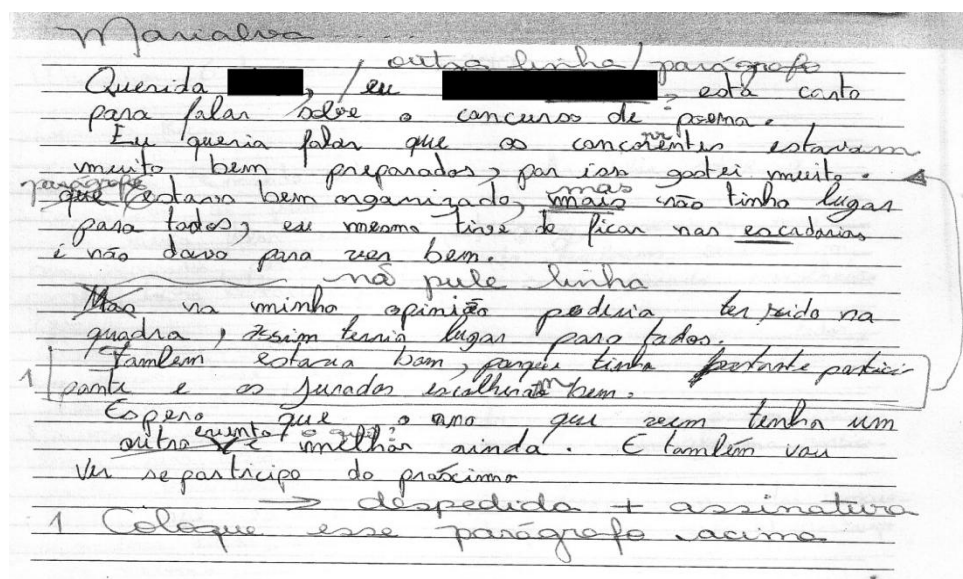 Marialva ....
outra linha/parágrafo
Querida , / eu , esta carta
para falar sobre o concurso de poema.
Eu queria falar que os concorrentes estavam
muito bem preparados, por isso gostei muito.
parágrafo mas
que estava bem organizado, mais não tinha lugar
para todos, eu mesmo tive de ficar nas escadarias
i não dava para ver bem.
não pule linha
Mas na minha opinião poderia ter sido na
quadra, assim teria lugar para todos.
1 Tambem estava bom, porque tinha bastante partici
pante e os jurados escolheram bem.
Espero que o ano que vem tenha um
outro evento e melhor ainda. E também vou
ver se participo do próximo
→ despedida + assinatura
1 Coloque esse parágrafo acima